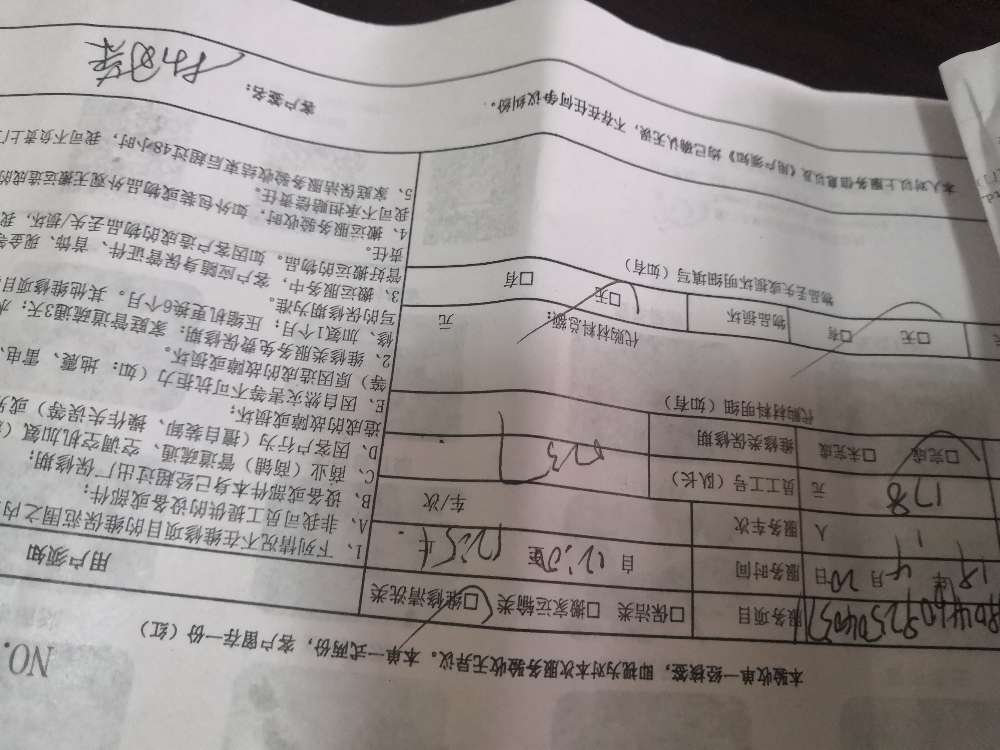 NO.
本验收单一经核签，即视为对本次服务验收无异议。本单一式两份，客户留存一份（红）
服务项目 □保洁类 □搬家运输类 □维修清洗类
服务时间
年 4月20日
自 至
服务车次 人 车/次
178 元 员工工号（队长）
□完成 □未完成 维修类保修期
代购材料明细（如有）
代购材料总额： 元
□无 □有 物品损坏 □无 □有
物品丢失或损坏明细填写（如有）
用户须知
1、下列情况不在维修项目的维保范围之内
A、非我司员工提供的设备或部件；
B、设备或部件本身已经超过出厂保修期；
C、商业（商铺）管道疏通、空调空机加氟（
D、因客户行为（擅自装卸、操作失误等）或
造成的故障或损坏；
E、因自然灾害等不可抗拒力（如：地震、雷电、
等）原因造成的故障或损坏。
2、维修类服务免费保修期：家庭管道疏通3天；水
修、加氟1个月；压缩机更换6个月。其他维修项目
写的保修期为准。
3、搬运服务中，客户应随身保管证件、首饰、现金等
管好搬运的物品。如因客户造成的物品丢失/损坏，我
责任。
4、搬运服务验收时，如外包装或物品外观无搬运造成的
我司不承担赔偿责任。
5、家庭保洁服务验收结束后超过48小时，我司不负责上门
本人对以上服务信息以及《用户须知》均已确认无误，不存在任何争议纠纷。
客户签名：